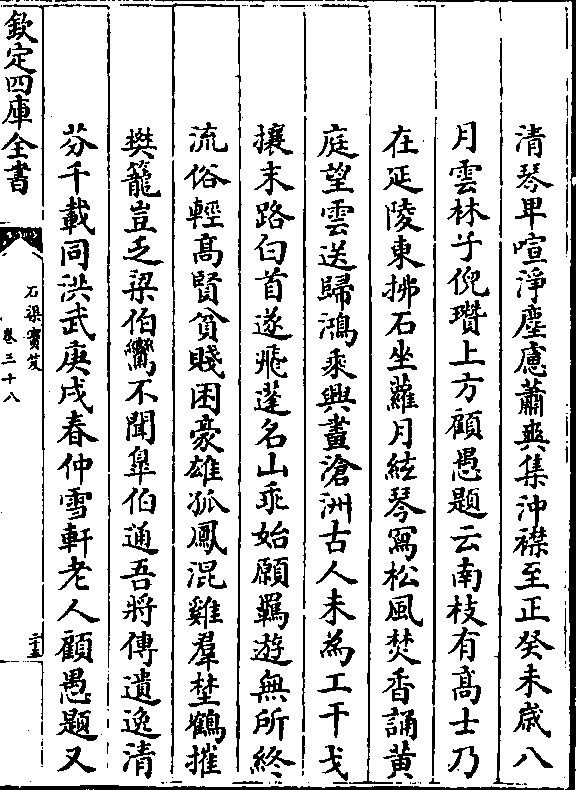 清琴畢喧淨塵慮蕭爽集沖襟至正癸未歲八
月雲林子倪瓚上方顧愚題云南枝有高士乃
在延陵東拂石坐蘿月絃琴寫松風焚香誦黃
庭望雲送歸鴻乘興畫滄洲古人未為工干戈
攘末路白首遂飛蓬名山乖始願羈遊無所終
流俗輕高賢貧賤困豪雄狐鳳混雞羣埜鶴摧
樊籠豈乏梁伯鸞不聞臯伯通吾將傳遺逸清
芬千載同洪武庚戌春仲雪軒老人顧愚題又
欽定四庫全書
石渠寶笈
卷三十八